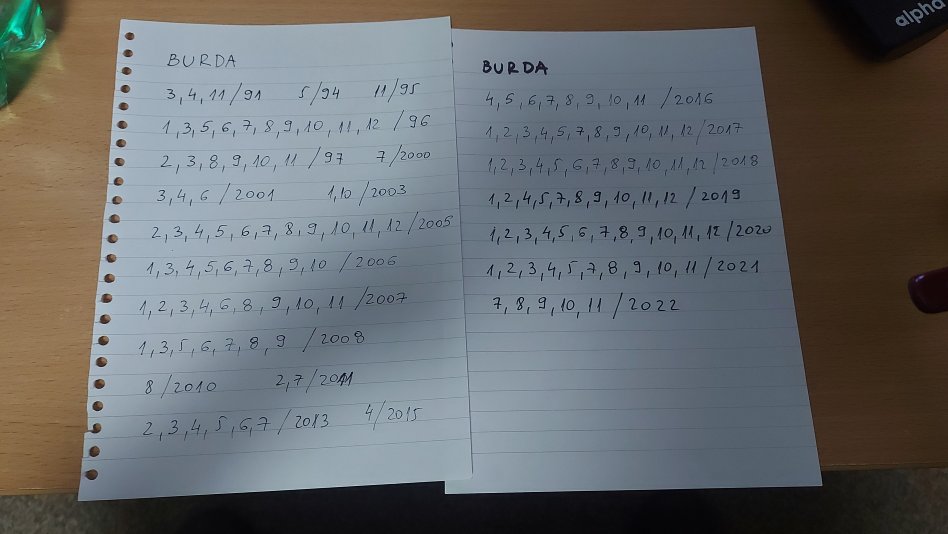 BURDA
3, 4, 11/91 5/94 11/95
1, 3, 5, 6, 7, 8, 9, 10, 11, 12 /96
2, 3, 8, 9, 10, 11 /97 7/2000
3, 4, 6 /2001 1,10 /2003
2, 3, 4, 5, 6, 7, 8, 9, 10, 11, 12 /2005
1, 3, 4, 5, 6, 7, 8, 9, 10 /2006
1, 2, 3, 4, 6, 8, 9, 10, 11 /2007
1, 3, 5, 6, 7, 8, 9 /2008
8 /2010 2,7/2011
2, 3, 4, 5, 6, 7 /2013 4/2015
BURDA
4, 5, 6, 7, 8, 9, 10, 11 /2016
1, 2, 3, 4, 5, 7, 8, 9, 10, 11, 12 /2017
1, 2, 3, 4, 5, 6, 7, 8, 9, 10, 11, 12 /2018
1, 2, 4, 5, 7, 8, 9, 10, 11, 12 /2019
1, 2, 3, 4, 5, 6, 7, 8, 9, 10, 11, 12 /2020
1, 2, 3, 4, 5, 7, 8, 9, 10, 11 /2021
7, 8, 9, 10, 11 /2022
alpha